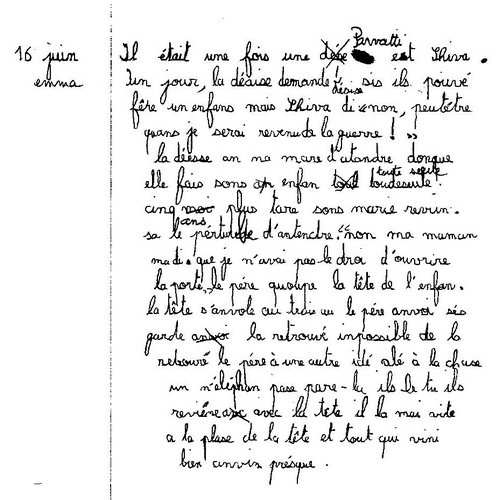 16 juin Il était une fois une Parvatti et Shiva.
emma Un jour, la déaise demande sis ils pouvé
fêre un enfans mais Shiva di « non, peutêtre
quans je serai revenu de la guerre ! »
la déesse an na mare d'atandre donque
elle fais sons enfan toute seule.
cinq ans plus tare sons marie revin.
sa le pérturbe d'antendre : "non ma maman
ma di que je n'avai pas le droi d'ouvrire
la porte", le père quoupe la tête de l'enfan.
la tête s'anvole cui trais le père anvoi sés
garde la retrouvé impossible de la
retrouvé le père à une autre idé alé à la chase
un n'éléphan pase pare-la ils le tu ils
reviène avec la tête il la mai vite
a la plase de la tête et tout qui vini
bien anvin présque.